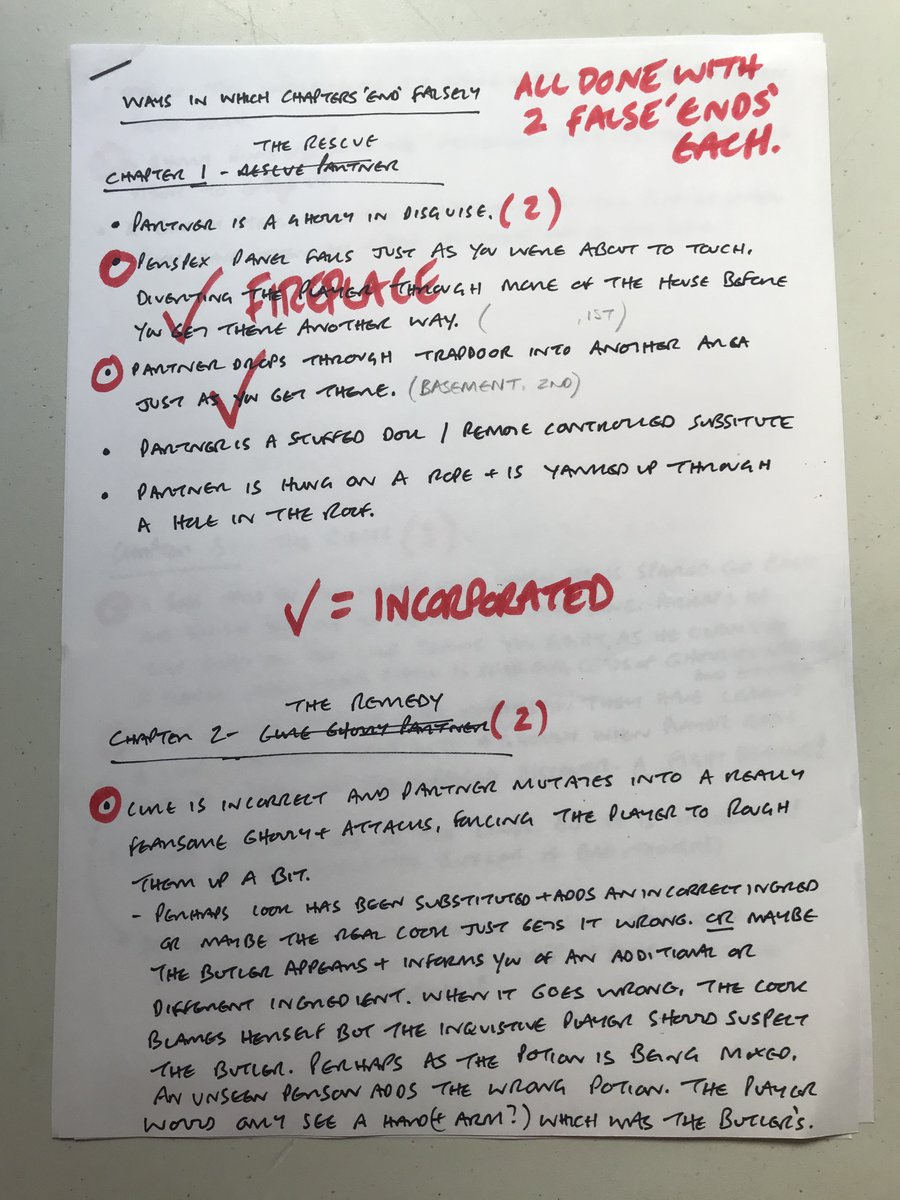 WAYS IN WHICH CHAPTERS 'END' FALSELY
ALL DONE WITH
2 FALSE 'ENDS'
EACH.
THE RESCUE
CHAPTER 1 - RESCUE PARTNER
• PARTNER IS A GHOULY IN DISGUISE. (2)
• PERSPEX PANEL FALLS JUST AS YOU WERE ABOUT TO TOUCH.
DIVERTING THE PLAYER THROUGH MORE OF THE HOUSE BEFORE
FIREPLACE
YOU GET THERE ANOTHER WAY. ( , 1ST)
• PARTNER DROPS THROUGH TRAPDOOR INTO ANOTHER AREA
JUST AS YOU GET THERE. (BASEMENT, 2ND)
• PARTNER IS A STUFFED DOLL / REMOTE CONTROLLED SUBSITUTE
• PARTNER IS HUNG ON A ROPE + IS YANKED UP THROUGH
A HOLE IN THE ROOF.
✓ = INCORPORATED
THE REMEDY
CHAPTER 2 - CURE GHOULY PARTNER (2)
• CURE IS INCORRECT AND PARTNER MUTATES INTO A REALLY
FEARSOME GHOULY + ATTACKS, FORCING THE PLAYER TO ROUGH
THEM UP A BIT.
- PERHAPS COOK HAS BEEN SUBSTITUTED + ADDS AN INCORRECT INGRED
OR MAYBE THE REAL COOK JUST GETS IT WRONG. OR MAYBE
THE BUTLER APPEARS + INFORMS YOU OF AN ADDITIONAL OR
DIFFERENT INGREDIENT. WHEN IT GOES WRONG, THE COOK
BLAMES HIMSELF BUT THE INQUISTIVE PLAYER SHOULD SUSPECT
THE BUTLER. PERHAPS AS THE POTION IS BEING MIXED,
AN UNSEEN PERSON ADDS THE WRONG POTION. THE PLAYER
WOULD ONLY SEE A HAND (+ ARM?) WHICH WAS THE BUTLER'S.